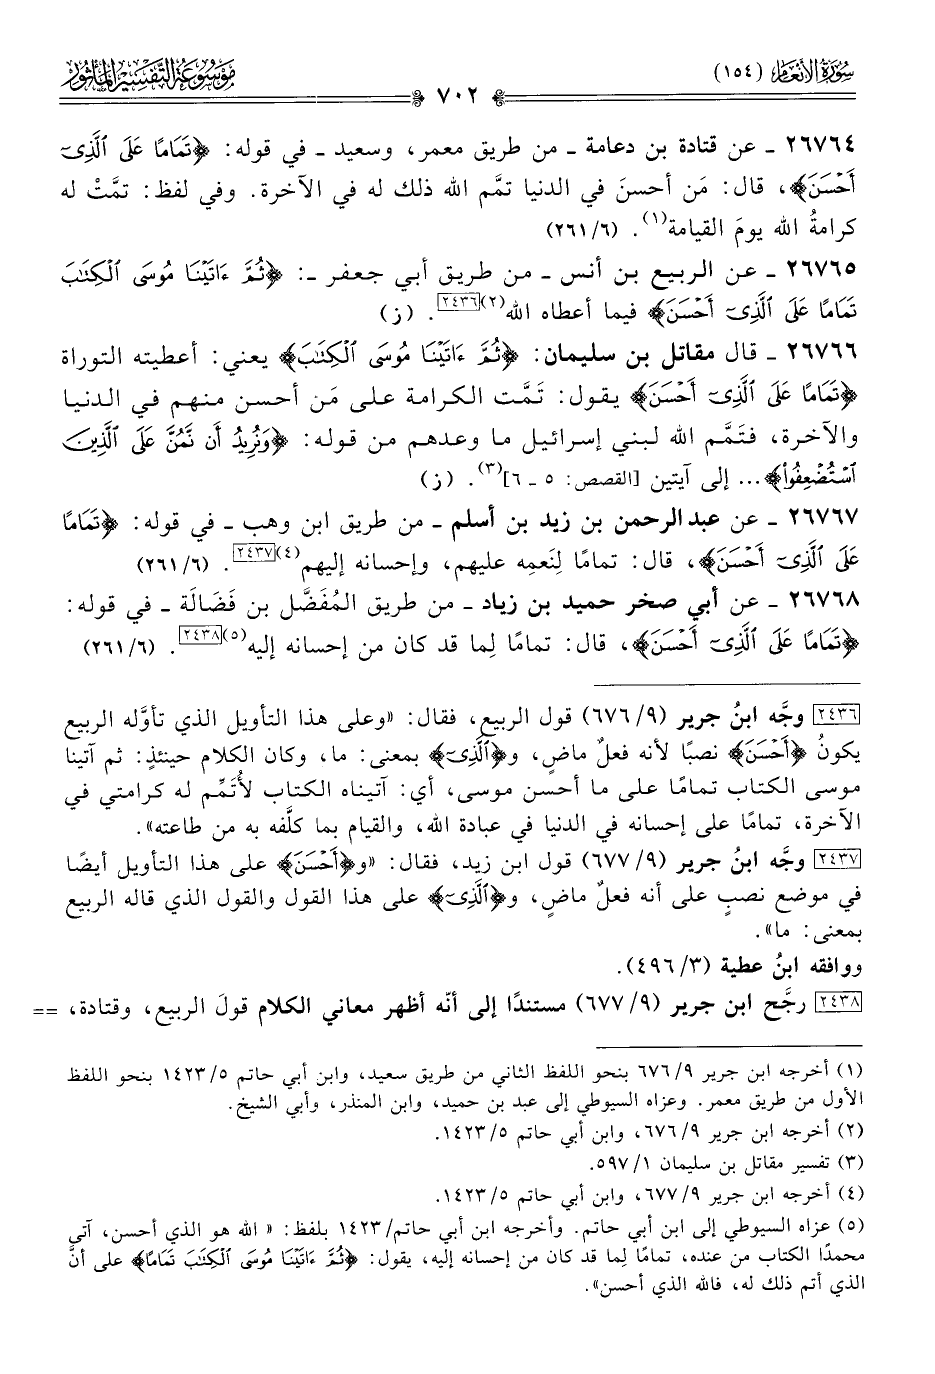 سُورَةُ الأَنْعَامِ (١٥٤)
٧٠٢
مَوْسُوعَةُ التَّفْسِيرِ المَأْثُورِ
٢٦٧٦٤ - عن قتادة بن دعامة - من طريق معمر، وسعيد - في قوله: ﴿تَمَامًا عَلَى ٱلَّذِىٓ
أَحْسَنَ﴾، قال: مَن أحسنَ في الدنيا تمَّم الله ذلك له في الآخرة. وفي لفظ: تمَّتْ له
كرامةُ الله يومَ القيامة(١). (٢٦١/٦)
٢٦٧٦٥ - عن الربيع بن أنس - من طريق أبي جعفر -: ﴿ثُمَّ ءَاتَيْنَا مُوسَى ٱلْكِتَٰبَ
تَمَامًا عَلَى ٱلَّذِىٓ أَحْسَنَ﴾ فيما أعطاه الله(٢)[٢٤٣٦]. (ز)
٢٦٧٦٦ - قال مقاتل بن سليمان: ﴿ثُمَّ ءَاتَيْنَا مُوسَى ٱلْكِتَٰبَ﴾ يعني: أعطيته التوراة
﴿تَمَامًا عَلَى ٱلَّذِىٓ أَحْسَنَ﴾ يقول: تَمَّت الكرامة على مَن أحسن منهم في الدنيا
والآخرة، فتَمَّم الله لبني إسرائيل ما وعدهم من قوله: ﴿وَنُرِيدُ أَن نَّمُنَّ عَلَى ٱلَّذِينَ
ٱسْتُضْعِفُوا۟﴾... إلى آيتين [القصص: ٥ - ٦](٣). (ز)
٢٦٧٦٧ - عن عبد الرحمن بن زيد بن أسلم - من طريق ابن وهب - في قوله: ﴿تَمَامًا
عَلَى ٱلَّذِىٓ أَحْسَنَ﴾، قال: تمامًا لِنَعمِه عليهم، وإحسانه إليهم(٤)[٢٤٣٧]. (٢٦١/٦)
٢٦٧٦٨ - عن أبي صخر حميد بن زياد - من طريق المُفَضَّل بن فَضَالَة - في قوله:
﴿تَمَامًا عَلَى ٱلَّذِىٓ أَحْسَنَ﴾، قال: تمامًا لِما قد كان من إحسانه إليه(٥)[٢٤٣٨]. (٢٦١/٦)
[٢٤٣٦] وجَّه ابنُ جرير (٦٧٦/٩) قول الربيع، فقال: «وعلى هذا التأويل الذي تأوَّله الربيع
يكونُ ﴿أَحْسَنَ﴾ نصبًا لأنه فعلٌ ماضٍ، و﴿ٱلَّذِىٓ﴾ بمعنى: ما، وكان الكلام حينئذٍ: ثم آتينا
موسى الكتاب تمامًا على ما أحسن موسى، أي: آتيناه الكتاب لأُتَمِّم له كرامتي في
الآخرة، تمامًا على إحسانه في الدنيا في عبادة الله، والقيام بما كلَّفه به من طاعته».
[٢٤٣٧] وجَّه ابنُ جرير (٦٧٧/٩) قول ابن زيد، فقال: «و﴿أَحْسَنَ﴾ على هذا التأويل أيضًا
في موضع نصبٍ على أنه فعلٌ ماضٍ، و﴿ٱلَّذِىٓ﴾ على هذا القول والقول الذي قاله الربيع
بمعنى: ما».
ووافقه ابنُ عطية (٤٩٦/٣).
[٢٤٣٨] رجَّح ابن جرير (٦٧٧/٩) مستندًا إلى أنّه أظهر معاني الكلام قولَ الربيع، وقتادة، ==
(١) أخرجه ابن جرير ٦٧٦/٩ بنحو اللفظ الثاني من طريق سعيد، وابن أبي حاتم ١٤٢٣/٥ بنحو اللفظ
الأول من طريق معمر. وعزاه السيوطي إلى عبد بن حميد، وابن المنذر، وأبي الشيخ.
(٢) أخرجه ابن جرير ٦٧٦/٩، وابن أبي حاتم ١٤٢٣/٥.
(٣) تفسير مقاتل بن سليمان ٥٩٧/١.
(٤) أخرجه ابن جرير ٦٧٧/٩، وابن أبي حاتم ١٤٢٣/٥.
(٥) عزاه السيوطي إلى ابن أبي حاتم. وأخرجه ابن أبي حاتم/١٤٢٣ بلفظ: « الله هو الذي أحسن، آتى
محمدًا الكتاب من عنده، تمامًا لِما قد كان من إحسانه إليه، يقول: ﴿ثُمَّ ءَاتَيْنَا مُوسَى ٱلْكِتَٰبَ تَمَامًا﴾ على أنَّ
الذي أتم ذلك له، فالله الذي أحسن».